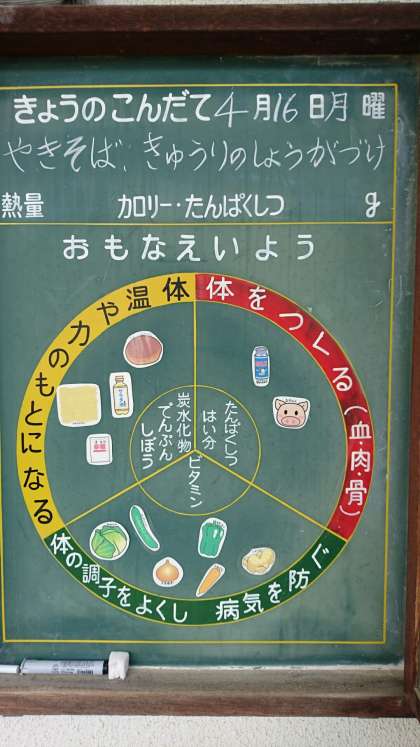 きょうのこんだて 4月16日月曜
やきそば、きゅうりのしょうがづけ
熱量 カロリー・たんぱくしつ g
おもなえいよう
体をつくる(血・肉・骨)
体温や力のもとになる
体の調子をよくし 病気を防ぐ
たんぱくしつ
はい分
炭水化物
でんぷん
しぼう
ビタミン